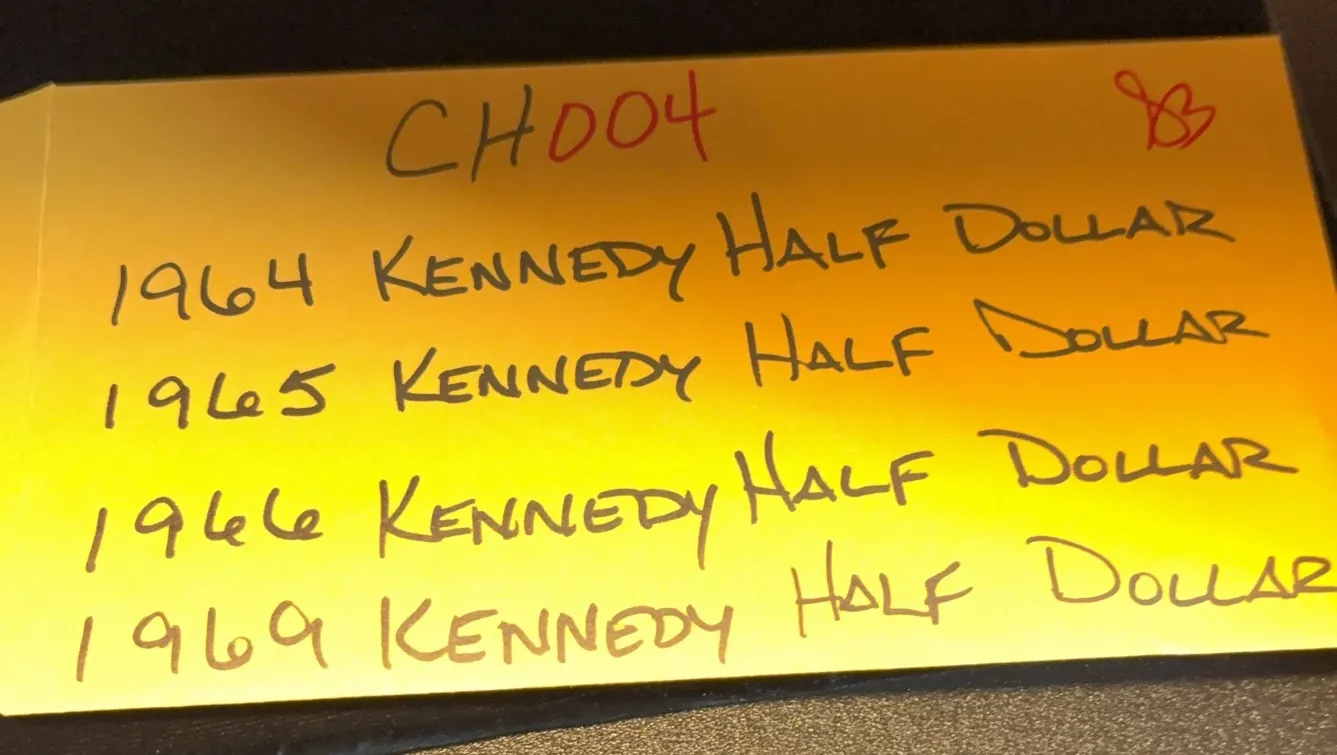 CH004
1964 KENNEDY HALF DOLLAR
1965 KENNEDY HALF DOLLAR
1966 KENNEDY HALF DOLLAR
1969 KENNEDY HALF DOLLAR